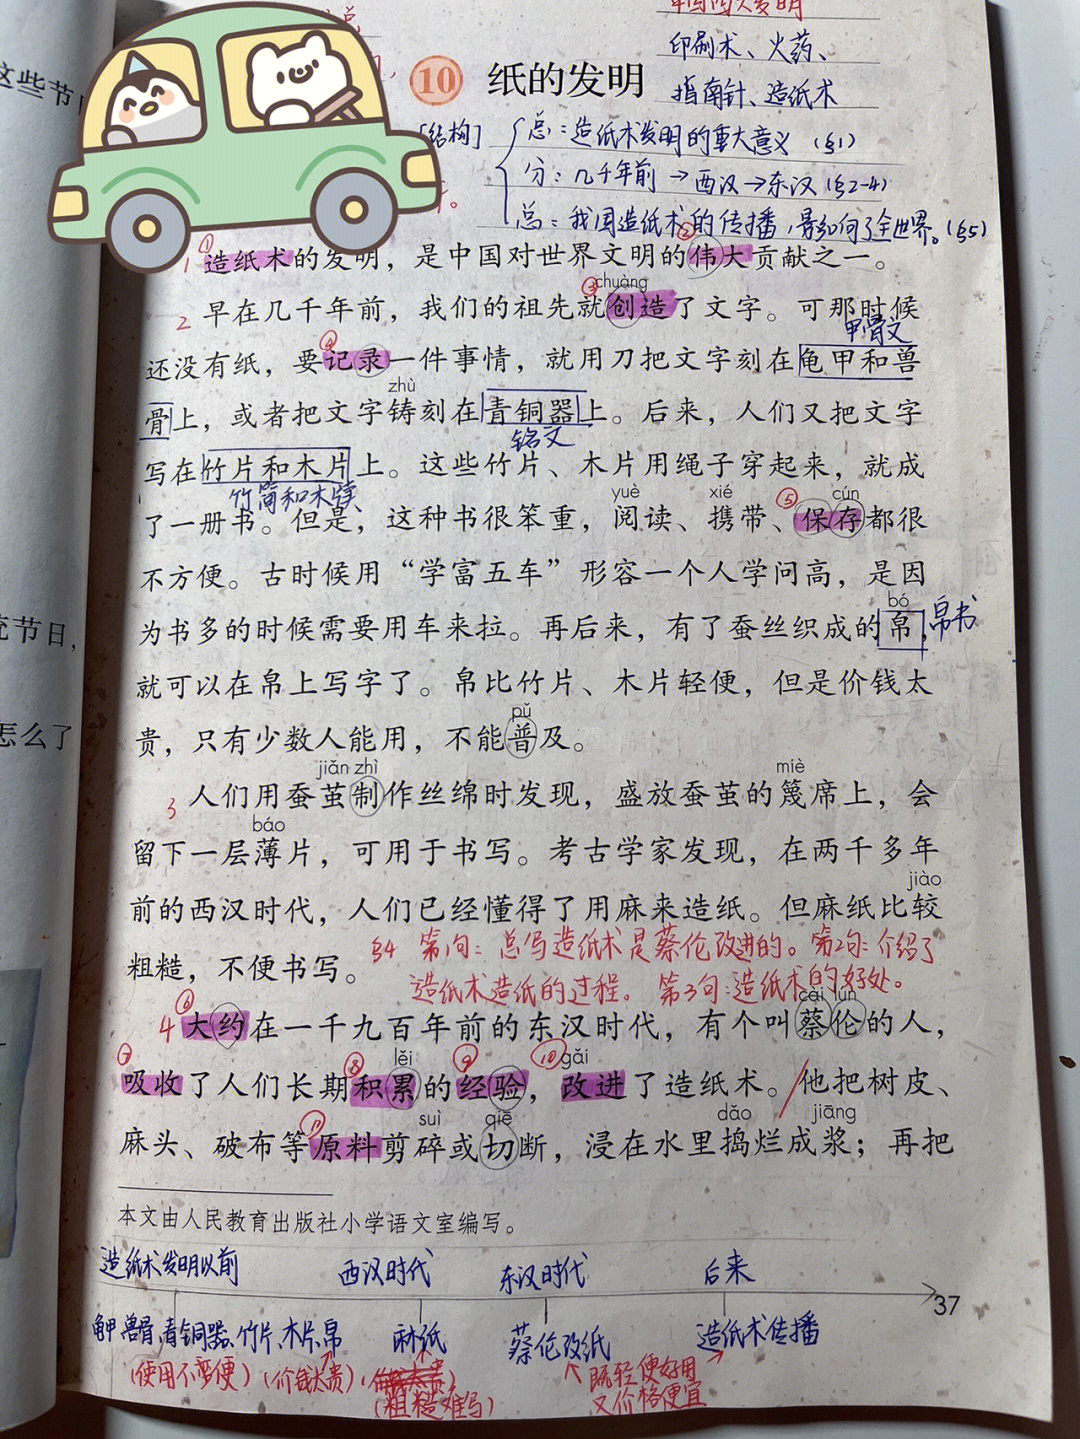 这些节日
中国四大发明
印刷术、火药、
指南针、造纸术
10 纸的发明
[结构]
总：造纸术发明的重大意义（§1）
分：几千年前→西汉→东汉（§2-4）
总：我国造纸术的传播，影响了全世界。（§5）
①
②
1 造纸术的发明，是中国对世界文明的伟大贡献之一。
③ chuàng
2 早在几千年前，我们的祖先就创造了文字。可那时候
④ 甲骨文
还没有纸，要记录一件事情，就用刀把文字刻在龟甲和兽
zhù
骨上，或者把文字铸刻在青铜器上。后来，人们又把文字
铭文
写在竹片和木片上。这些竹片、木片用绳子穿起来，就成
竹简和木牍
yuè xié ⑤ cún
了一册书。但是，这种书很笨重，阅读、携带、保存都很
不方便。古时候用“学富五车”形容一个人学问高，是因
bó
为书多的时候需要用车来拉。再后来，有了蚕丝织成的帛，
帛书
就可以在帛上写字了。帛比竹片、木片轻便，但是价钱太
pǔ
贵，只有少数人能用，不能普及。
jiǎn zhì miè
3 人们用蚕茧制作丝绵时发现，盛放蚕茧的篾席上，会
báo
留下一层薄片，可用于书写。考古学家发现，在两千多年
jiào
前的西汉时代，人们已经懂得了用麻来造纸。但麻纸比较
粗糙，不便书写。
§4 第1句：总写造纸术是蔡伦改进的。第2句：介绍了
造纸术造纸的过程。第3句：造纸术的好处。
⑥ cài lún
4 大约在一千九百年前的东汉时代，有个叫蔡伦的人，
⑦ ⑧ lěi ⑨ ⑩ gǎi
吸收了人们长期积累的经验，改进了造纸术。他把树皮、
⑪ suì qiē dǎo jiāng
麻头、破布等原料剪碎或切断，浸在水里捣烂成浆；再把
本文由人民教育出版社小学语文室编写。
造纸术发明以前 西汉时代 东汉时代 后来
37
龟甲兽骨、青铜器、竹片、木片、帛 麻纸 蔡伦改纸 造纸术传播
（使用不方便）（价钱太贵）
（粗糙难写）
既轻便好用
又价格便宜
统节日，
怎么了